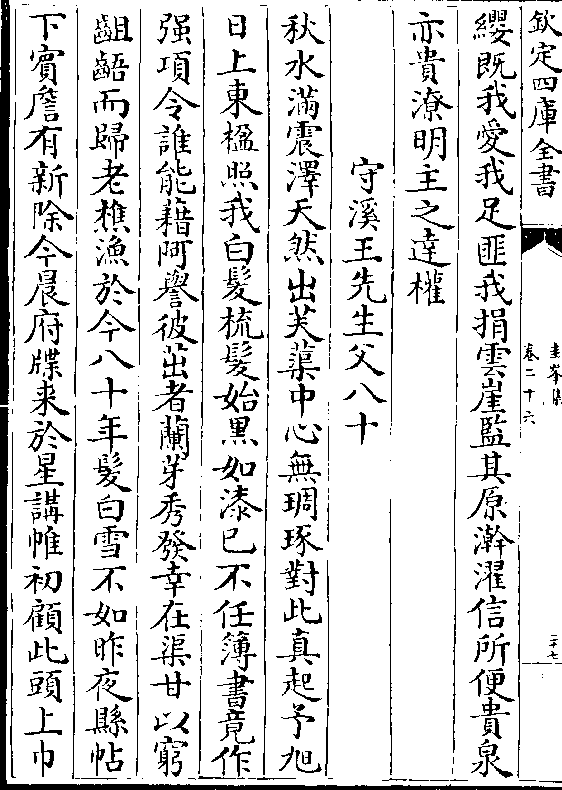 欽定四庫全書
圭峯集
卷二十六
二十七
纓既我愛我足匪我捐雲崖監其原澣濯信所便貴泉
亦貴潦明主之達權
守溪王先生父八十
秋水滿震澤天然出芙蕖中心無琱琢對此真起予旭
日上東楹照我白髮梳髮始黒如漆已不任簿書竟作
强項令誰能藉阿譽彼茁者蘭芽秀發幸在渠甘以窮
齟齬而歸老樵漁於今八十年髮白雪不如昨夜縣帖
下賓詹有新除今晨府牒来於星講帷初顧此頭上巾